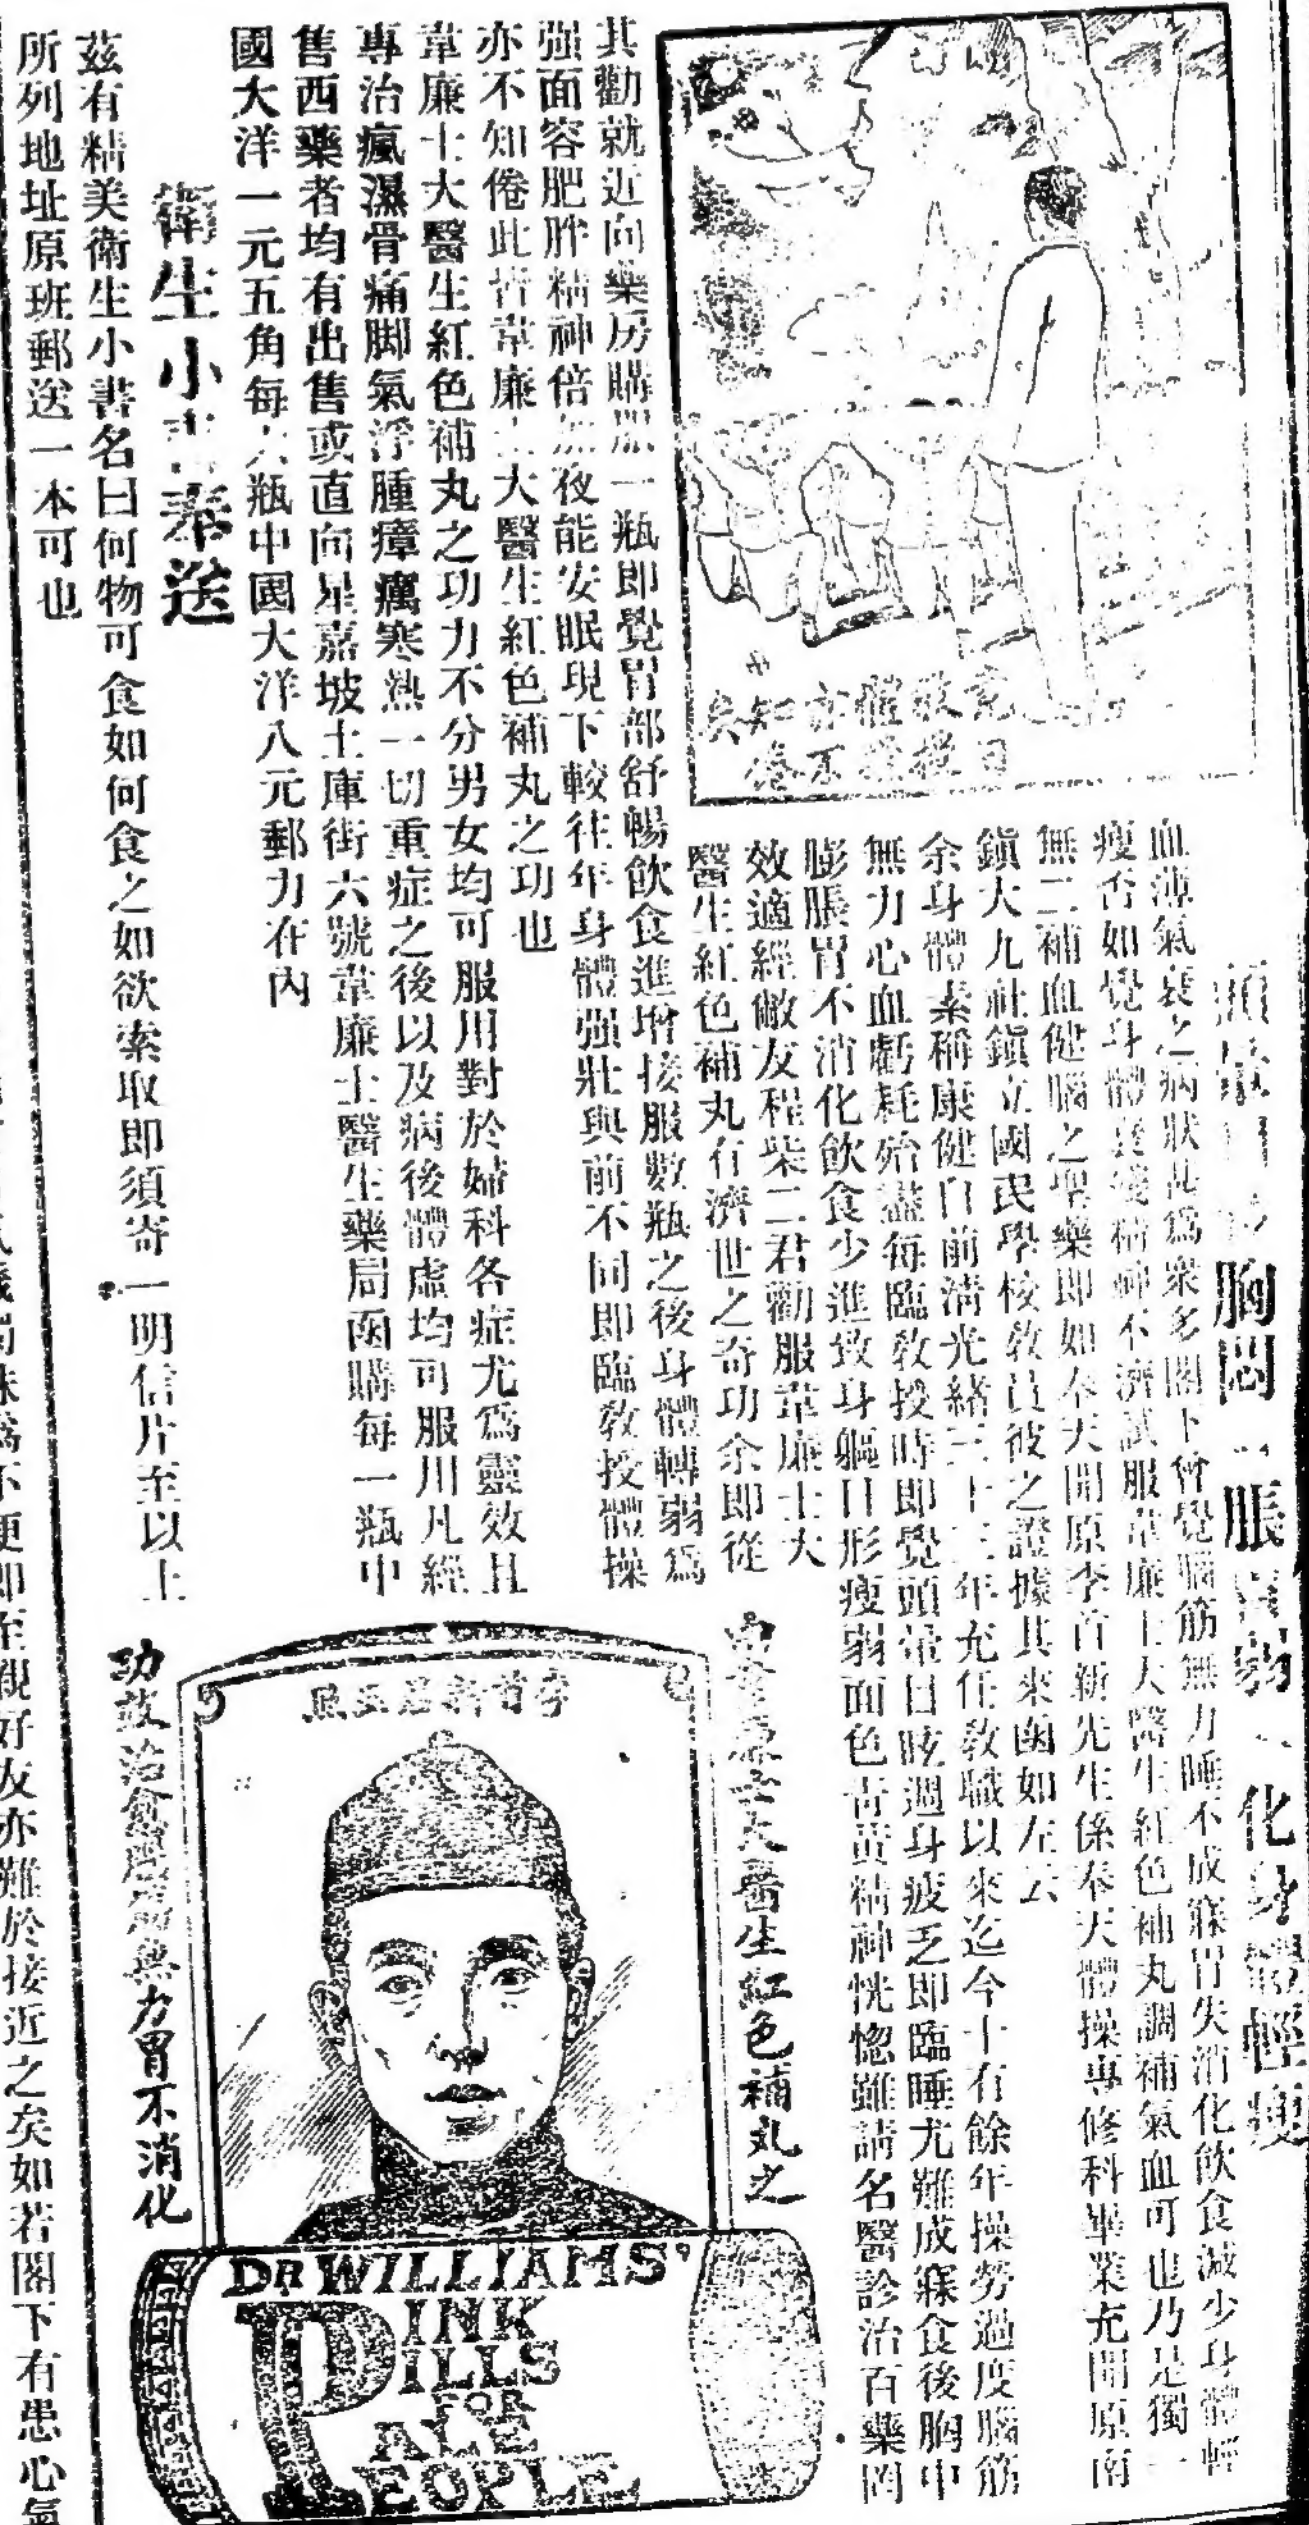 胸悶 脹 弱 化身體輕瘦
血薄氣衰之病狀甚爲衆多閣下曾覺腦筋無力睡不成寐胃失消化飲食減少身體輕
瘦否如覺身體衰殘精神不濟試服韋廉士大醫生紅色補丸調補氣血可也乃是獨一
無二補血健腦之聖藥即如奉天開原李首新先生係奉天體操專修科畢業充開原南
鎭大九社鎭立國民學校敎員彼之證據其來函如左云
余身體素稱康健自前淸光緖三十三年充任敎職以來迄今十有餘年操勞過度腦筋
無力心血虧耗殆盡每臨敎授時即覺頭暈目眩週身疲乏即臨睡尤難成寐食後胸中
膨脹胃不消化飲食少進致身軀日形瘦弱面色靑黃精神恍惚雖請名醫診治百藥罔
效適經敝友程柴二君勸服韋廉士大
醫生紅色補丸有濟世之奇功余即從
其勸就近向藥房購服一瓶即覺胃部舒暢飲食進增接服數瓶之後身體轉弱爲
强面容肥胖精神倍加夜能安眠現下較往年身體强壯與前不同即臨敎授體操
亦不知倦此皆韋廉士大醫生紅色補丸之功也
韋廉士大醫生紅色補丸之功力不分男女均可服用對於婦科各症尤爲靈效且
專治瘋濕骨痛脚氣浮腫瘴癘寒熱一切重症之後以及病後體虛均可服用凡經
售西藥者均有出售或直向星嘉坡土庫街六號韋廉士醫生藥局函購每一瓶中
國大洋一元五角每六瓶中國大洋八元郵力在內
衛生小書奉送
茲有精美衛生小書名曰何物可食如何食之如欲索取即須寄一明信片至以上
所列地址原班郵送一本可也
大醫生紅色補丸之
功效治愈腦筋無力胃不消化
李首新君玉照
DR WILLIAMS'
PINK
PILLS
FOR
PALE
PEOPLE
爲不便即至親好友亦難於接近之矣如若閣下有患心氣